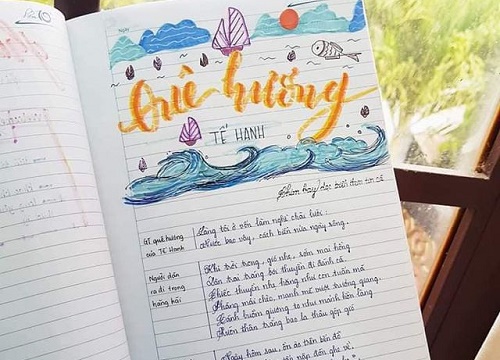 Ngày
Quê hương
TẾ HANH
Chim bay dọc biển đem tin cá
GT quê hương
của Tế Hanh
Làng tôi ở vốn làm nghề chài lưới:
Nước bao vây, cách biển nửa ngày sông.
Người dân
ra đi trong
hăng hái
Khi trời trong, gió nhẹ, sớm mai hồng
Dân trai tráng bơi thuyền đi đánh cá.
Chiếc thuyền nhẹ hăng như con tuấn mã
Phăng mái chèo, mạnh mẽ vượt trường giang.
Cánh buồm giương to như mảnh hồn làng
Rướn thân trắng bao la thâu góp gió
Ngày hôm sau, ồn ào trên bến đỗ
tấp nập đón ghe về.